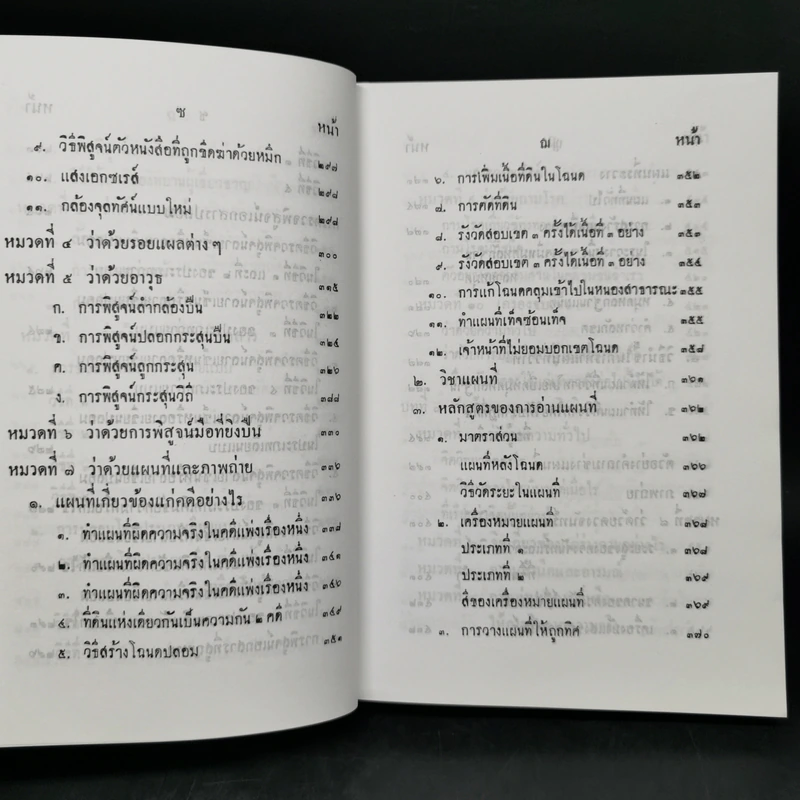 ซ
หน้า
๙. วิธีพิสูจน์ตัวหนังสือที่ถูกขีดฆ่าด้วยหมึก ๒๙๗
๑๐. แสงเอกซเรส์ ๒๙๘
๑๑. กล้องจุลทัศน์แบบใหม่ ๒๙๘
หมวดที่ ๔ ว่าด้วยรอยแผลต่าง ๆ ๓๐๐
หมวดที่ ๕ ว่าด้วยอาวุธ ๓๑๕
ก. การพิสูจน์ลำกล้องปืน ๓๒๒
ข. การพิสูจน์ปลอกกระสุนปืน ๓๒๔
ค. การพิสูจน์ลูกกระสุน ๓๒๖
ง. การพิสูจน์กระสุนวิถี ๓๘๘
หมวดที่ ๖ ว่าด้วยการพิสูจน์มือที่ยิงปืน ๓๓๐
หมวดที่ ๗ ว่าด้วยแผนที่และภาพถ่าย ๓๓๖
๑. แผนที่เกี่ยวข้องแก่คดีอย่างไร ๓๓๖
๑. ทำแผนที่ผิดความจริงในคดีแพ่งเรื่องหนึ่ง ๓๓๘
๒. ทำแผนที่ผิดความจริงในคดีแพ่งเรื่องหนึ่ง ๓๔๑
๓. ทำแผนที่ผิดความจริงในคดีแพ่งเรื่องหนึ่ง ๓๔๖
๔. ที่ดินแห่งเดียวกันเป็นความกัน ๒ คดี ๓๔๙
๕. วิธีสร้างโฉนดปลอม ๓๕๑
ฌ
หน้า
๖. การเพิ่มเนื้อที่ดินในโฉนด ๓๕๒
๘. การตัดที่ดิน ๓๕๓
๘. รังวัดสอบเขต ๓ ครั้งได้เนื้อที่ ๓ อย่าง ๓๕๓
๙. รังวัดสอบเขต ๓ ครั้งได้เนื้อที่ ๓ อย่าง ๓๕๔
๑๐. การแก้โฉนดคลุมเข้าไปในหนองสาธารณะ ๓๕๕
๑๑. ทำแผนที่เท็จซ้อนเท็จ ๓๕๕
๑๒. เจ้าหน้าที่ไม่ยอมบอกเขตโฉนด ๓๕๘
๒. วิชาแผนที่ ๓๖๑
๓. หลักสูตรของการอ่านแผนที่ ๓๖๒
๑. มาตราส่วน ๓๖๒
แผนที่หลังโฉนด ๓๖๖
วิธีวัดระยะในแผนที่ ๓๖๗
๒. เครื่องหมายแผนที่ ๓๖๘
ประเภทที่ ๑ ๓๖๘
ประเภทที่ ๒ ๓๖๙
สีของเครื่องหมายแผนที่ ๓๖๙
๓. การวางแผนที่ให้ถูกทิศ ๓๗๐